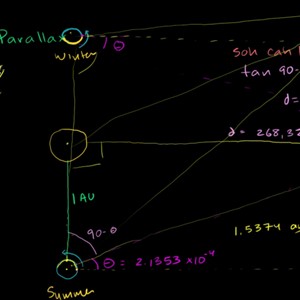 Parallax
θ
Winter
soh cah
tan 90-
d=
d = 268,32
1 AU
90-θ
1.5374
θ = 2.1353 ×10⁻⁴
Summer